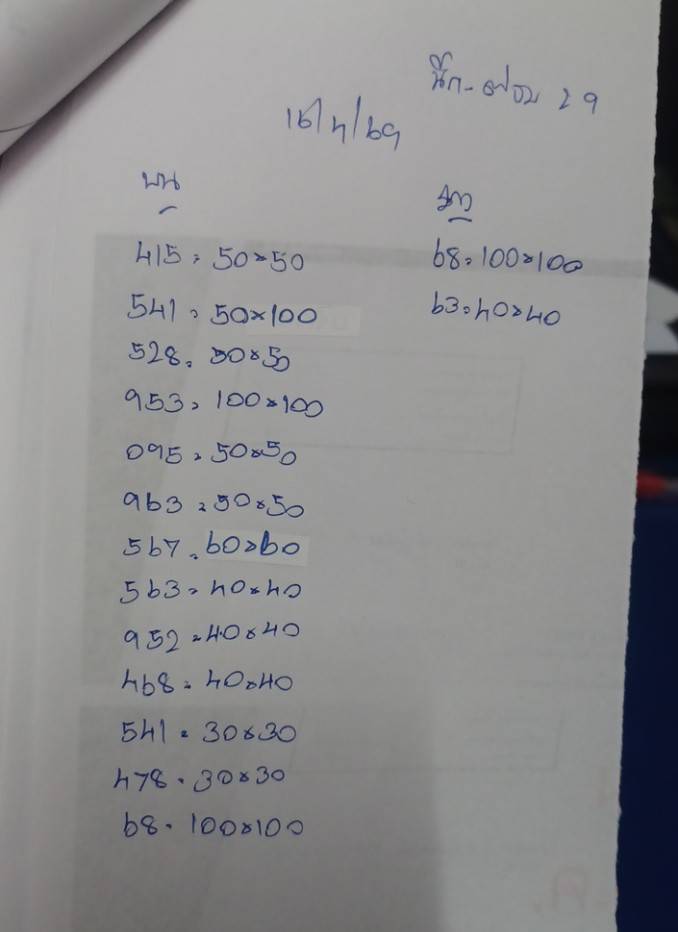 นิ๊ก-สปอบ 29
16/4/69
บน
415 = 50×50
541 = 50×100
528 = 50×50
953 = 100×100
095 = 50×50
963 = 50×50
567 = 60×60
563 = 40×40
952 = 40×40
468 = 40×40
541 = 30×30
478 = 30×30
68 = 100×100
ล่าง
68 = 100×100
63 = 40×40